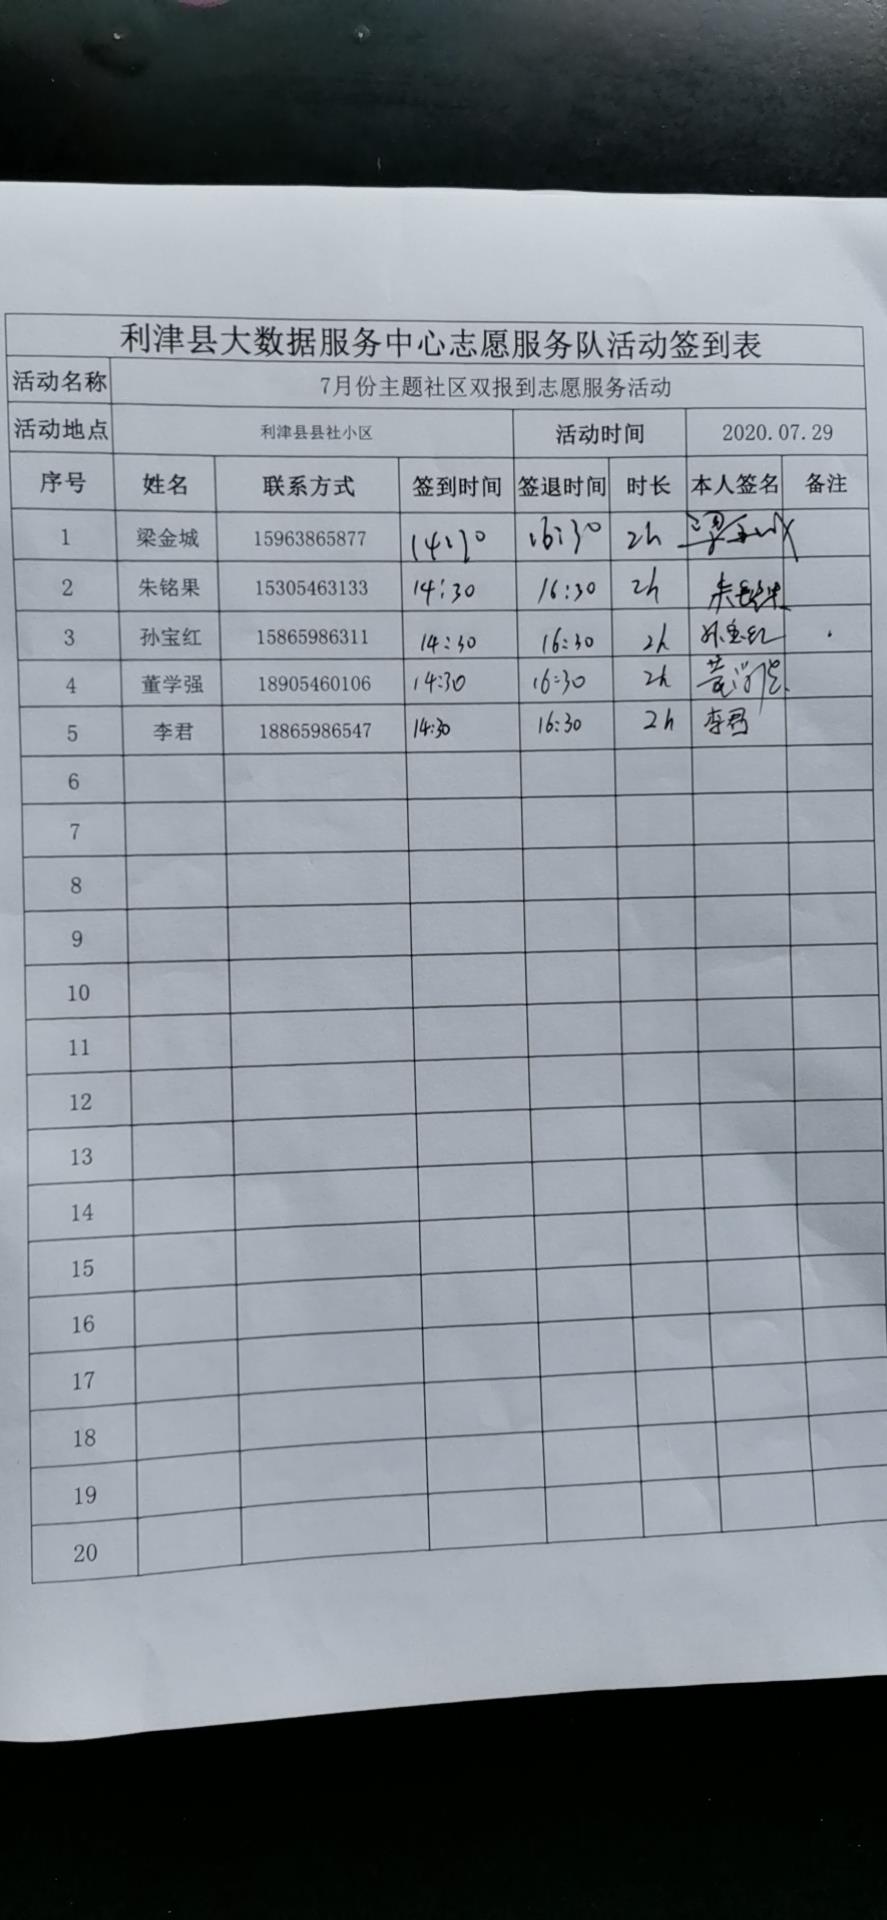 利津县大数据服务中心志愿服务队活动签到表
活动名称 7月份主题社区双报到志愿服务活动
活动地点 利津县县社小区 活动时间 2020.07.29
序号 姓名 联系方式 签到时间 签退时间 时长 本人签名 备注
1 梁金城 15963865877 14:30 16:30 2h 梁金城
2 朱铭果 15305463133 14:30 16:30 2h 朱铭果
3 孙宝红 15865986311 14:30 16:30 2h 孙宝红
4 董学强 18905460106 14:30 16:30 2h 董学强
5 李君 18865986547 14:30 16:30 2h 李君
6
7
8
9
10
11
12
13
14
15
16
17
18
19
20